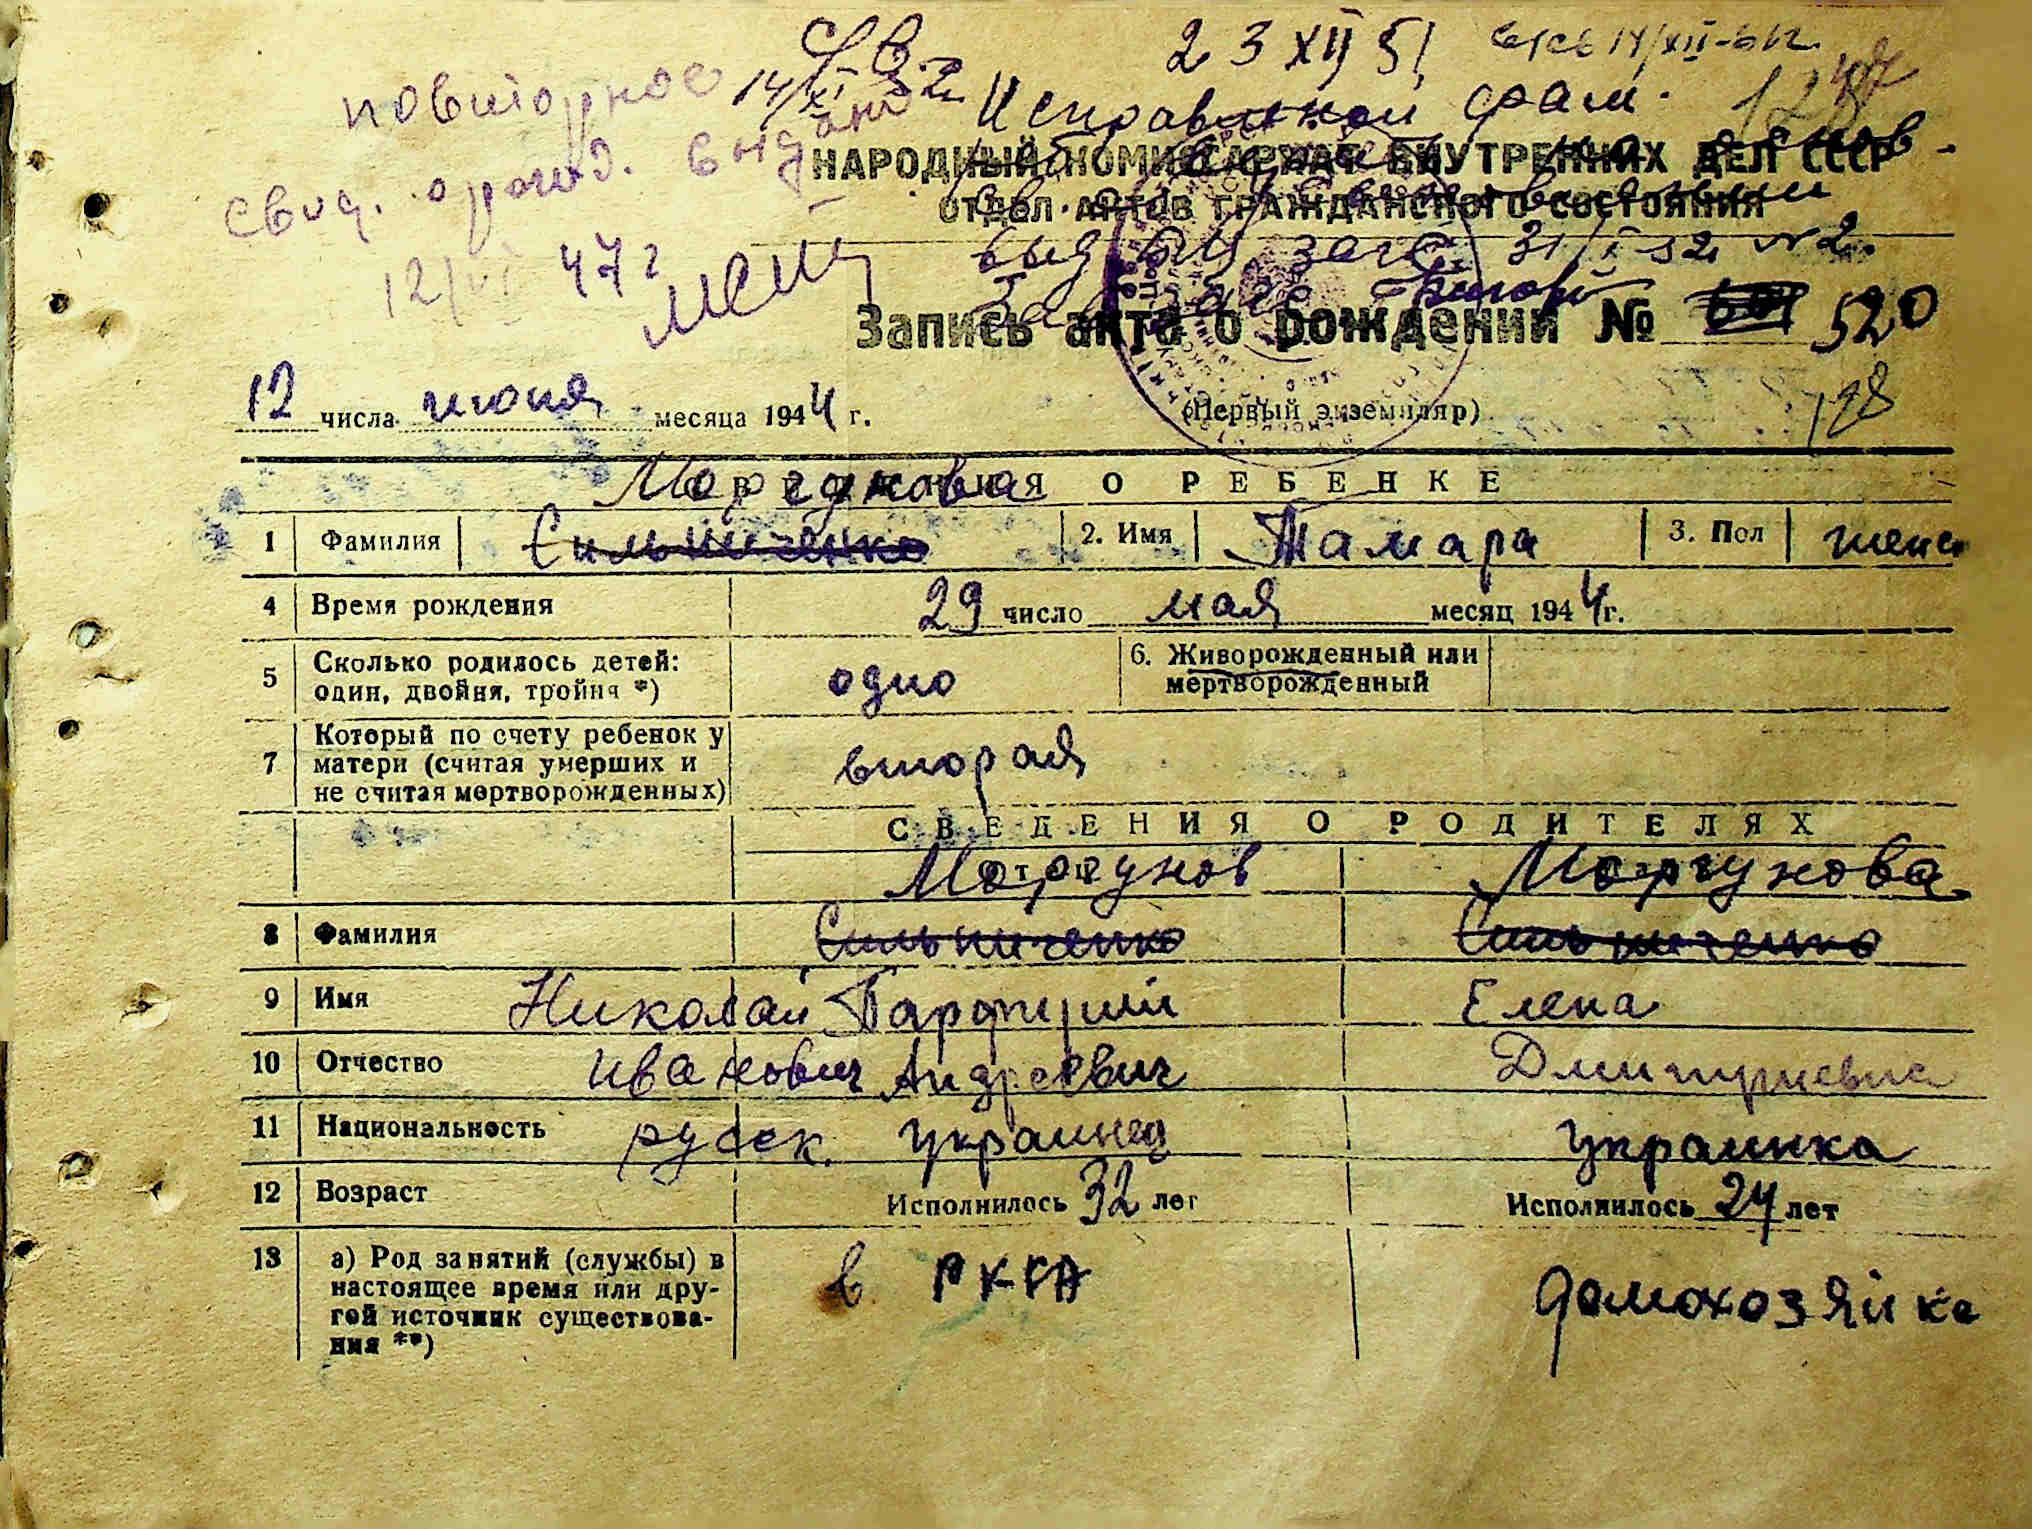 23 XII 51
14/XI 52г.
повторное
свид. о рожд. выдано
12/VI 47г
Исправлен фам.
НАРОДНЫЙ КОМИССАРИАТ ВНУТРЕННИХ ДЕЛ СССР
ОТДЕЛ АКТОВ ГРАЖДАНСКОГО СОСТОЯНИЯ
Запись акта о рождении № 520
128
12 числа июня месяца 1944 г. (Первый экземпляр)
СВЕДЕНИЯ О РЕБЕНКЕ
Моргунова
1 Фамилия Сильниченко 2. Имя Тамара 3. Пол женс
4 Время рождения 29 число мая месяц 1944г.
5 Сколько родилось детей: один, двойня, тройня *) одно 6. Живорожденный или мертворожденный
7 Который по счету ребенок у матери (считая умерших и не считая мертворожденных) вторая
СВЕДЕНИЯ О РОДИТЕЛЯХ
Моргунов Моргунова
8 Фамилия Сильниченко Сильниченко
9 Имя Николай Парфирий Елена
10 Отчество Иванович Андреевич Дмитриевна
11 Национальность русск. украинец украинка
12 Возраст Исполнилось 32 лет Исполнилось 24 лет
13 а) Род занятий (службы) в настоящее время или дру-
гой источник существова-
ния **) в РККА домохозяйка